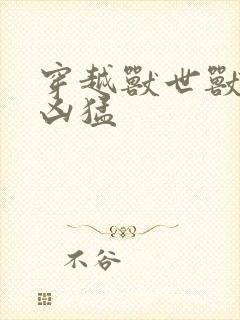 穿越獸世獸
凶猛
不谷